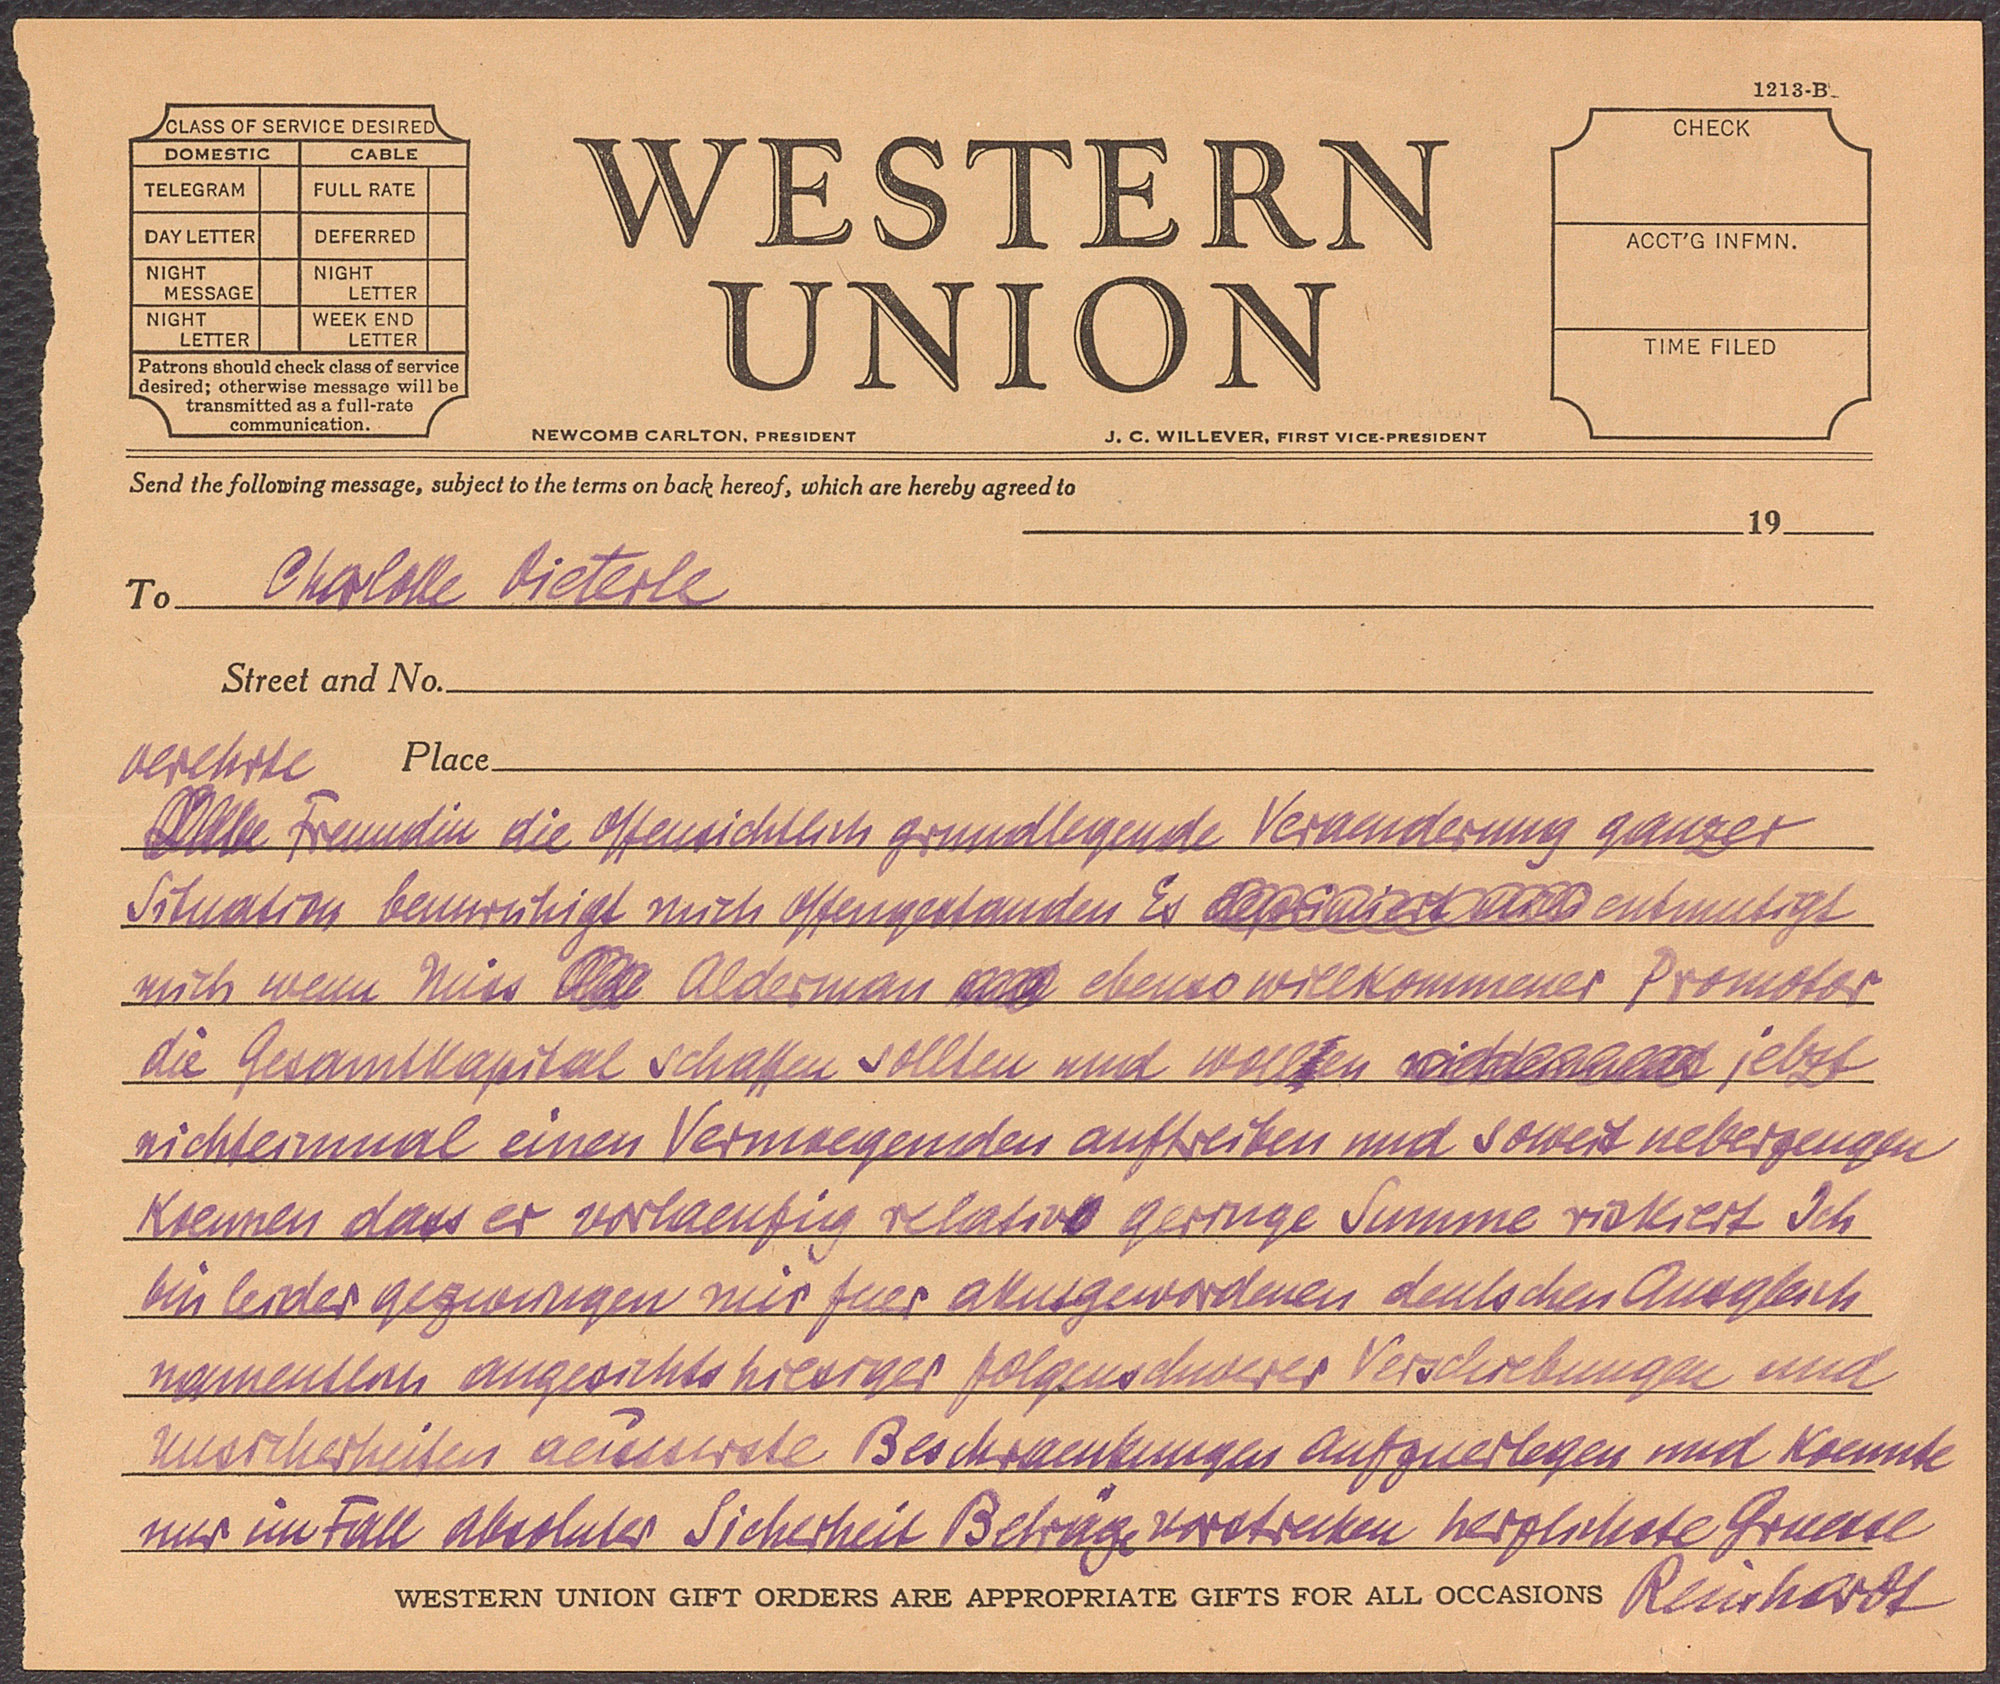 1213-B
CLASS OF SERVICE DESIRED
DOMESTIC CABLE
TELEGRAM FULL RATE
DAY LETTER DEFERRED
NIGHT MESSAGE NIGHT LETTER
NIGHT LETTER WEEK END LETTER
Patrons should check class of service
desired; otherwise message will be
transmitted as a full-rate
communication.
WESTERN
UNION
NEWCOMB CARLTON, PRESIDENT J. C. WILLEVER, FIRST VICE-PRESIDENT
CHECK
ACCT'G INFMN.
TIME FILED
Send the following message, subject to the terms on back hereof, which are hereby agreed to
19
To Charlotte Dieterle
Street and No.
verehrte Place
Freundin die offensichtlich grundlegende Veraenderung ganzer
Situation beunruhigt mich offengestanden Es entmutigt
mich wenn Miss Alderman ebenso willkommener Promotor
die Gesamtkapital schaffen sollten und wollten jetzt
nichteinmal einen Vermoegenden auftreiben und soweit ueberzeugen
koennen dass er vorlaeufig relativ geringe Summe riskiert Ich
bin leider gezwungen mir fuer akutgewordenen deutschen Ausgleich
namentlich angesichts hiesiger folgenschwerer Verschiebungen und
Unsicherheiten aeusserste Beschraenkungen aufzuerlegen und koennte
nur im Fall absoluter Sicherheit Beträge vorstrecken herzlichste Gruesse
Reinhardt
WESTERN UNION GIFT ORDERS ARE APPROPRIATE GIFTS FOR ALL OCCASIONS